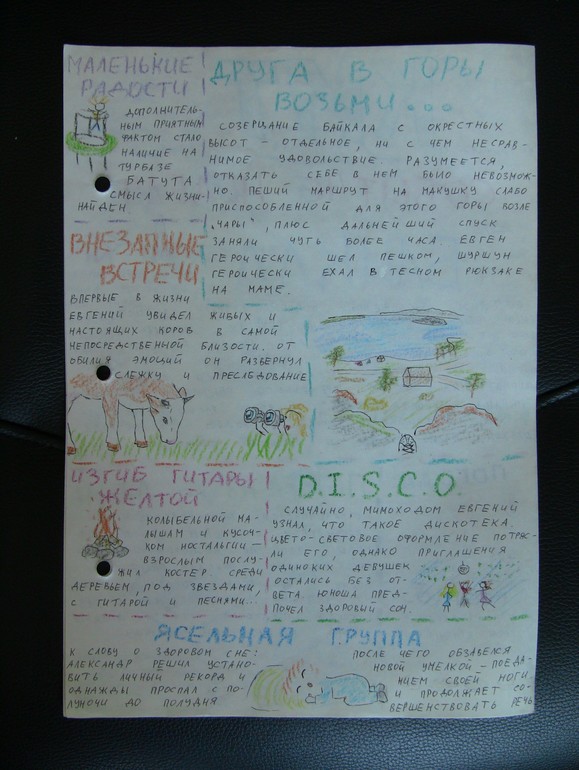 МАЛЕНЬКИЕ
РАДОСТИ
ДОПОЛНИТЕЛЬ-
НЫМ ПРИЯТНЫМ
ФАКТОМ СТАЛО
НАЛИЧИЕ НА
ТУРБАЗЕ
БАТУТА
СМЫСЛ ЖИЗНИ-
НАЙДЕН
ДРУГА В ГОРЫ
ВОЗЬМИ...
СОЗЕРЦАНИЕ БАЙКАЛА С ОКРЕСТНЫХ
ВЫСОТ - ОТДЕЛЬНОЕ, НИ С ЧЕМ НЕСРАВ-
НИМОЕ УДОВОЛЬСТВИЕ. РАЗУМЕЕТСЯ,
ОТКАЗАТЬ СЕБЕ В НЕМ БЫЛО НЕВОЗМОЖ-
НО. ПЕШИЙ МАРШРУТ НА МАКУШКУ СЛАБО
ПРИСПОСОБЛЕННОЙ ДЛЯ ЭТОГО ГОРЫ ВОЗЛЕ
"ЧАРЫ", ПЛЮС ДАЛЬНЕЙШИЙ СПУСК
ЗАНЯЛИ ЧУТЬ БОЛЕЕ ЧАСА. ЕВГЕН
ГЕРОИЧЕСКИ ШЕЛ ПЕШКОМ, ШУРШУН
ГЕРОИЧЕСКИ ЕХАЛ В ТЕСНОМ РЮКЗАКЕ
НА МАМЕ.
ВНЕЗАПНЫЕ
ВСТРЕЧИ
ВПЕРВЫЕ В ЖИЗНИ
ЕВГЕНИЙ УВИДЕЛ ЖИВЫХ И
НАСТОЯЩИХ КОРОВ В САМОЙ
НЕПОСРЕДСТВЕННОЙ БЛИЗОСТИ. ОТ
ОБИЛИЯ ЭМОЦИЙ ОН РАЗВЕРНУЛ
СЛЕЖКУ И ПРЕСЛЕДОВАНИЕ
ИЗГИБ ГИТАРЫ
ЖЕЛТОЙ
КОЛЫБЕЛЬНОЙ МА-
ЛЫШАМ И КУСОЧ-
КОМ НОСТАЛЬГИИ -
ВЗРОСЛЫМ ПОСЛУ-
ЖИЛ КОСТЕР СРЕДИ
ДЕРЕВЬЕВ, ПОД ЗВЕЗДАМИ,
С ГИТАРОЙ И ПЕСНЯМИ...
D.I.S.C.O.
СЛУЧАЙНО, МИМОХОДОМ ЕВГЕНИЙ
УЗНАЛ, ЧТО ТАКОЕ ДИСКОТЕКА.
ЦВЕТО-СВЕТОВОЕ ОФОРМЛЕНИЕ ПОТРЯС-
ЛИ ЕГО, ОДНАКО ПРИГЛАШЕНИЯ
ОДИНОКИХ ДЕВУШЕК
ОСТАЛИСЬ БЕЗ ОТ-
ВЕТА. ЮНОША ПРЕД-
ПОЧЕЛ ЗДОРОВЫЙ СОН.
ЯСЕЛЬНАЯ ГРУППА
К СЛОВУ О ЗДОРОВОМ СНЕ:
АЛЕКСАНДР РЕШИЛ УСТАНО-
ВИТЬ ЛИЧНЫЙ РЕКОРД И
ОДНАЖДЫ ПРОСПАЛ С ПО-
ЛУНОЧИ ДО ПОЛУДНЯ
ПОСЛЕ ЧЕГО ОБЗАВЕЛСЯ
НОВОЙ УМЕЛКОЙ - ПОЕДА-
НИЕМ СВОЕЙ НОГИ
И ПРОДОЛЖАЕТ СО-
ВЕРШЕНСТВОВАТЬ РЕЧЬ